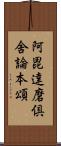 阿毘達磨倶
舍論本頌